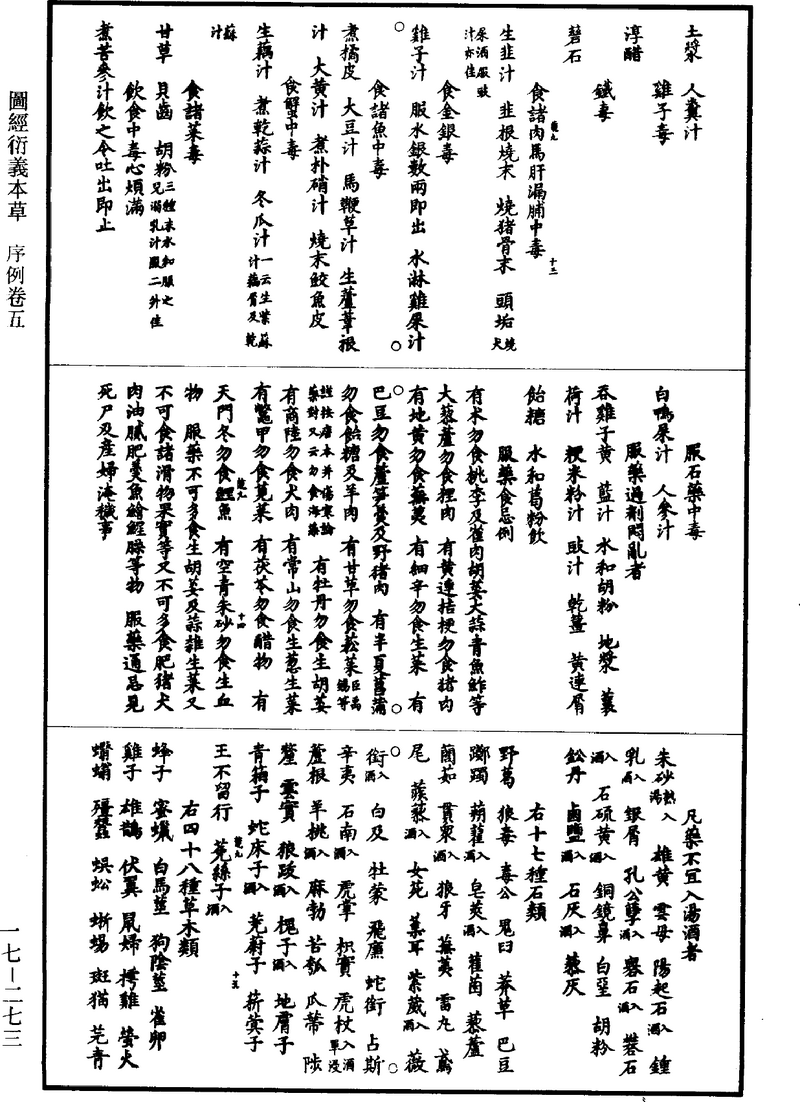 圖經衍義本草　序例卷五
一七－二七三
土漿　人糞汁
雞子毒
淳醋
鐵毒
磁石
食諸肉馬肝漏脯中毒
生韭汁　韭根燒末　燒猪骨末　頭垢　燒犬
屎酒服豉汁亦佳
食金銀毒
雞子汁　服水銀數兩即出　水淋雞屎汁
食諸魚中毒
煮橘皮　大豆汁　馬鞭草汁　生蘆葦根
汁　大黃汁　煮朴硝汁　燒末鮫魚皮
食蟹中毒
生藕汁　煮乾蒜汁　冬瓜汁　一云生紫蘇汁藕屑及乾
蘇汁
食諸菜毒
甘草　貝齒　胡粉　三種末水和服之兒溺乳汁服二升佳
飲食中毒心煩滿
煮苦參汁飲之令吐出即止
服石藥中毒
白鴨屎汁　人參汁
服藥過劑悶亂者
吞雞子黃　藍汁　水和胡粉　地漿　蘘
荷汁　粳米粉汁　豉汁　乾薑　黃連屑
飴糖　水和葛粉飲
服藥食忌例
有朮勿食桃李及雀肉胡荽大蒜青魚鮓等
大藜蘆勿食狸肉　有黃連桔梗勿食猪肉
有地黃勿食蕪荑　有細辛勿食生菜　有
巴豆勿食蘆笋羹及野猪肉　有半夏菖蒲
勿食飴糖及羊肉　有甘草勿食菘菜　臣禹錫等
謹按唐本并傷寒論藥對又云勿食海藻　有牡丹勿食生胡荽
有商陸勿食犬肉　有常山勿食生葱生菜
有鱉甲勿食莧菜　有茯苓勿食醋物　有
天門冬勿食鯉魚　有空青朱砂勿食生血
物　服藥不可多食生胡荽及蒜雜生菜又
不可食諸滑物果實等又不可多食肥猪犬
肉油膩肥羹魚鱠鯹臊等物　服藥通忌見
死尸及産婦淹穢事
凡藥不宜入湯酒者
朱砂　熟入湯　雄黃　雲母　陽起石　入酒　鍾
乳　入酒　銀屑　孔公孽　入酒　礜石　入酒　礬石
入酒　石硫黃　入酒　銅鏡鼻　白堊　胡粉
鉛丹　鹵鹽　入酒　石灰　入酒　藜灰
右十七種石類
野葛　狼毒　毒公　鬼臼　莽草　巴豆
躑躅　蒴藋　入酒　皂莢　入酒　雚菌　藜蘆
䕡茹　貫眾　入酒　狼牙　蕪荑　雷丸　鳶
尾　蒺藜　入酒　女菀　葈耳　紫葳　入酒　薇
銜　入酒　白及　牡蒙　飛廉　蛇銜　占斯
辛夷　石南　入酒　虎掌　枳實　虎杖　入酒單浸
蘆根　羊桃　入酒　麻勃　苦瓠　瓜蒂　陟
釐　雲實　狼跋　入酒　槐子　入酒　地膚子
青葙子　蛇床子　入酒　茺蔚子　菥蓂子
王不留行　菟絲子　入酒
右四十八種草木類
蜂子　蜜蠟　白馬莖　狗陰莖　雀卵
雞子　雄鵲　伏翼　鼠婦　樗雞　螢火
蠮螉　殭蠶　蜈蚣　蜥蜴　斑猫　芫青